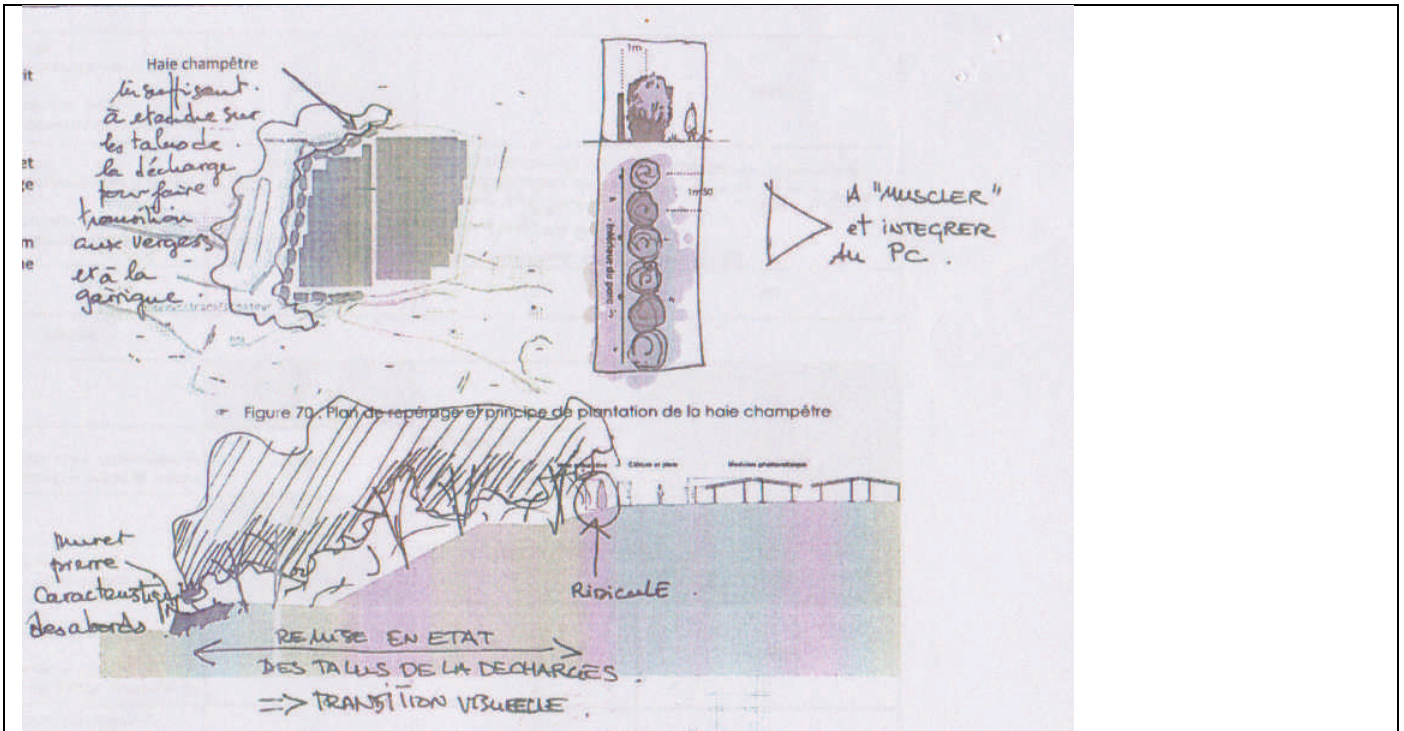 it
et
ge
m
ne
Haie champêtre
insuffisant.
à etendre sur
les talus de
la décharge
pour faire
transition
aux vergers
et à la
garrigue.
1m
1m50
Intérieur du parc
A "MUSCLER"
et INTEGRER
AU PC.
Figure 70 : Plan de repérage et principe de plantation de la haie champêtre
Clôture et piste
Modules photovoltaïques
muret
pierre
Caracteristique
des abords.
RIDICULE.
REMISE EN ETAT
DES TALUS DE LA DECHARGES.
=> TRANSITION VISUELLE.